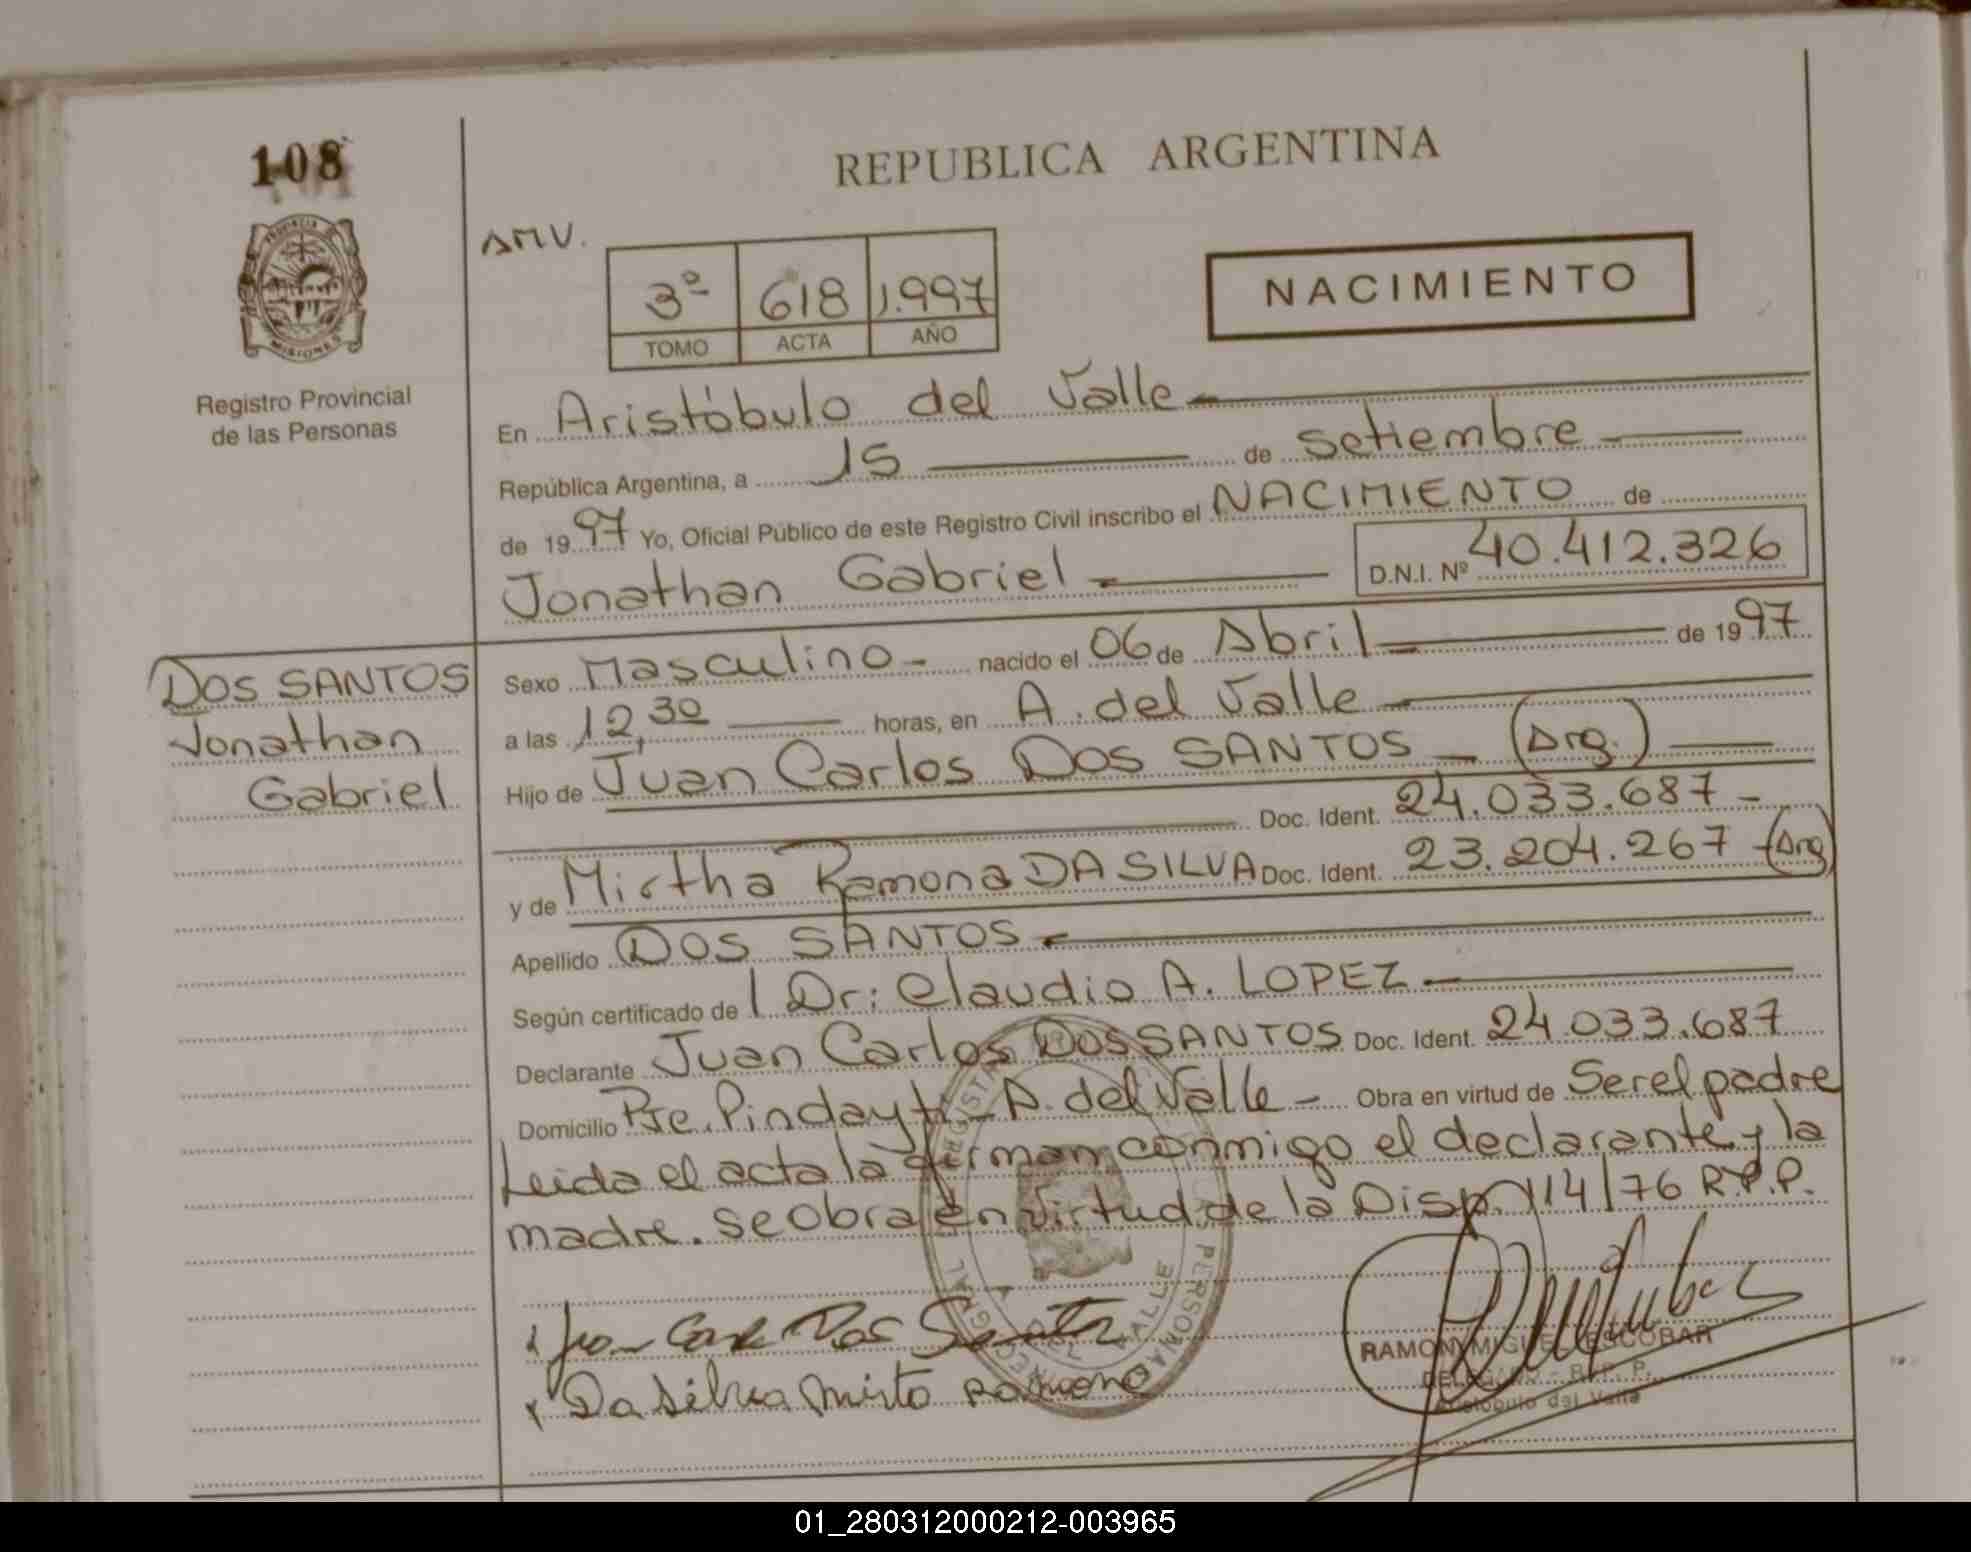 108
REPUBLICA ARGENTINA
PROVINCIA
MISIONES
Registro Provincial
de las Personas
AMV.
3º 618 1.997
TOMO ACTA AÑO
NACIMIENTO
En Aristóbulo del Valle
República Argentina, a 15 de Setiembre
de 1997 Yo, Oficial Público de este Registro Civil inscribo el NACIMIENTO de
Jonathan Gabriel D.N.I. Nº 40.412.326
DOS SANTOS
Jonathan
Gabriel
Sexo Masculino nacido el 06 de Abril de 1997
a las 12,30 horas, en A. del Valle
Hijo de Juan Carlos DOS SANTOS (Arg.)
Doc. Ident. 24.033.687
y de Mirtha Ramona DA SILVA Doc. Ident. 23.204.267 (Arg)
Apellido DOS SANTOS
Según certificado de Dr: Claudio A. LOPEZ
Declarante Juan Carlos DOS SANTOS Doc. Ident. 24.033.687
Domicilio Pje. Pindayti - A. del Valle Obra en virtud de Ser el padre
Leida el acta la firman conmigo el declarante y la
madre. se obra en virtud de la Disp. 114/76 R.P.P.
Juan Carlos Dos Santos
Da Silva Mirta Ramona
RAMON MIGUEL ESCOBAR
DELEGADO - R. P. P.
Aristóbulo del Valle
01_280312000212-003965